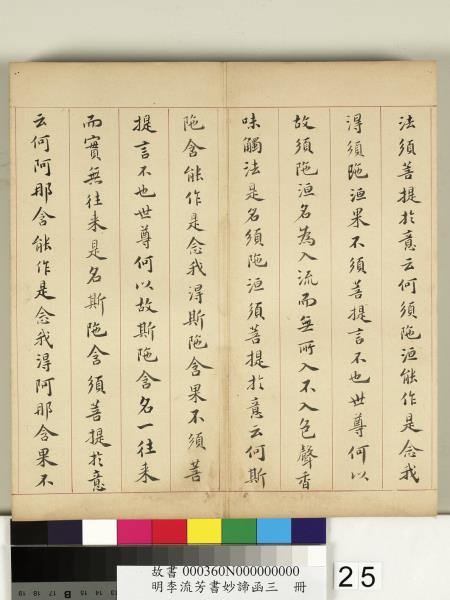 法須菩提於意云何須陁洹能作是念我
得須陁洹果不須菩提言不也世尊何以
故須陁洹名為入流而無所入不入色聲香
味觸法是名須陁洹須菩提於意云何斯
陁含能作是念我得斯陁含果不須菩
提言不也世尊何以故斯陁含名一往来
而實無往来是名斯陁含須菩提於意
云何阿那含能作是念我得阿那含果不
故書 000360N000000000
明李流芳書妙諦函三 冊
25